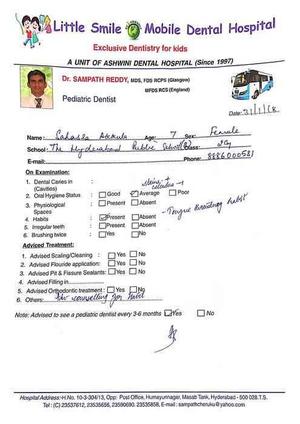 Little Smile Mobile Dental Hospital
Exclusive Dentistry for kids
A UNIT OF ASHWINI DENTAL HOSPITAL (Since 1997)
Dr. SAMPATH REDDY, MDS, FDS RCPS (Glasgow)
MFDS RCS (England)
Pediatric Dentist
Date: 31/1/18
Name: Age: 7 Sex: Female
School: The Hyderabad Public School Class:
E-mail: Phone:
On Examination:
1. Dental Caries in (Cavities)
2. Oral Hygiene Status Good Average Poor
3. Physiological Spaces Present Absent
4. Habits Present Absent Tongue thrusting habit
5. Irregular teeth Present Absent
6. Brushing twice Yes No
Advised Treatment:
1. Advised Scaling/Cleaning : Yes No
2. Advised Flouride application: Yes No
3. Advised Pit & Fissure Sealants: Yes No
4. Advised Filling in
5. Advised Orthodontic treatment : Yes No
6. Others: counselling for habit
Note: Advised to see a pediatric dentist every 3-6 months Yes No
Hospital Address:-H.No. 10-3-304/13, Opp: Post Office, Humayunagar, Masab Tank, Hyderabad - 500 028.T.S.
Tel : (C) 23537612, 23535656, 23590690, 23535858, E-mail : sampathcheruku@yahoo.com